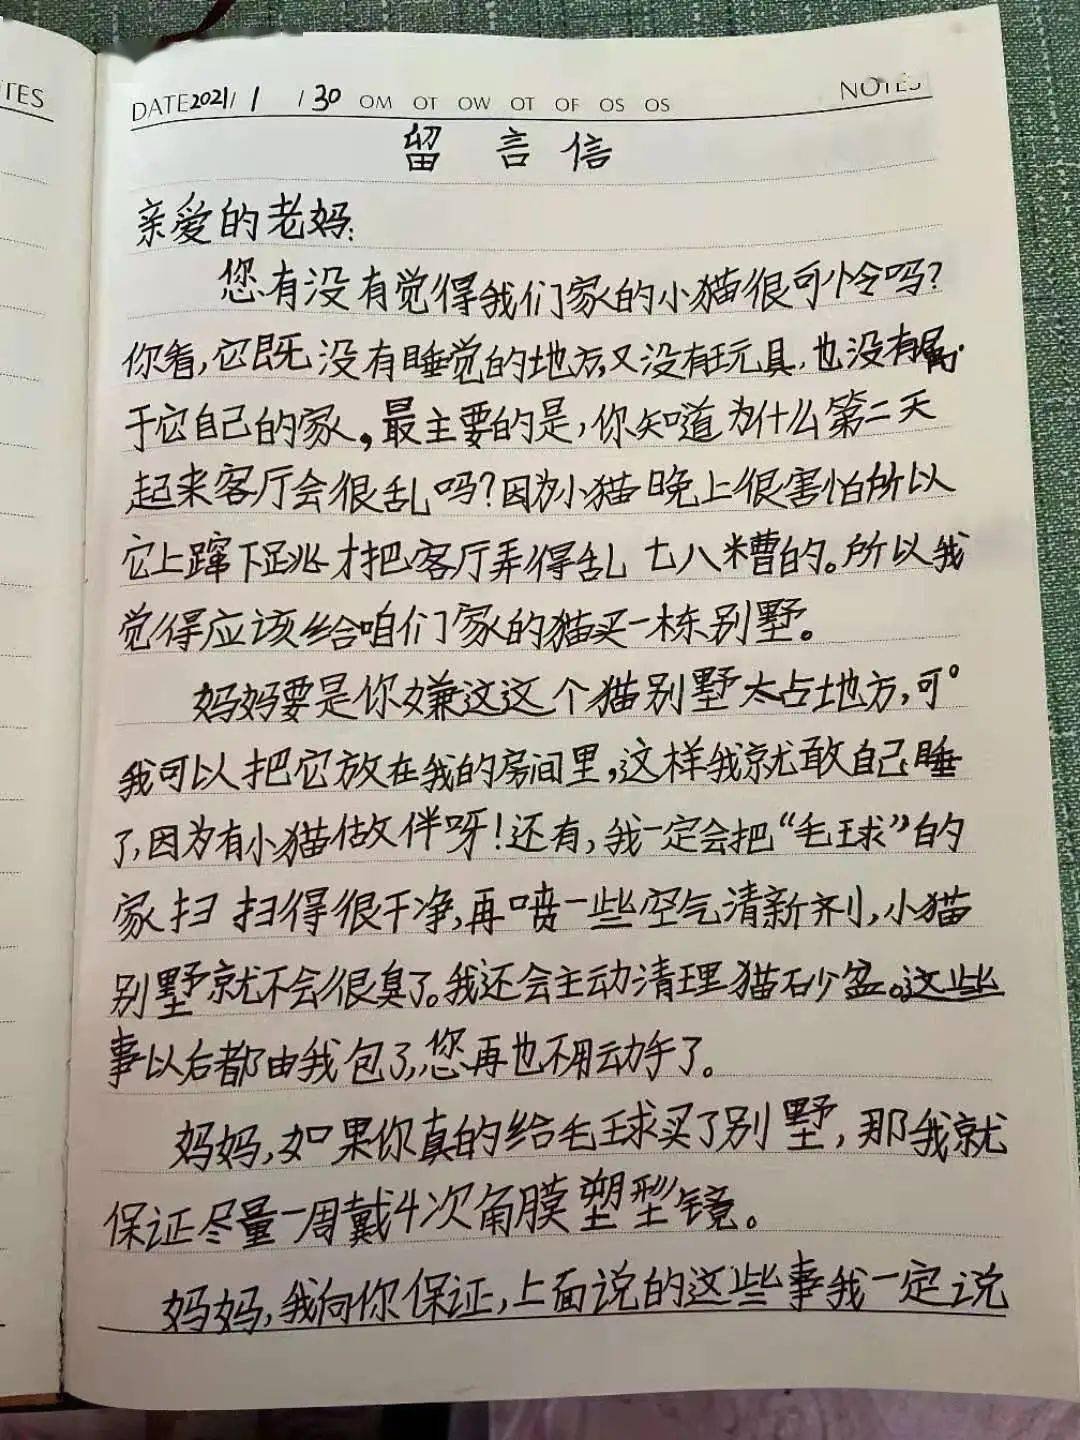 TES
DATE 2021/ 1 / 30 OM OT OW OT OF OS OS NOTES
留言信
亲爱的老妈:
您有没有觉得我们家的小猫很可怜吗?
你看,它既没有睡觉的地方,又没有玩具,也没有属
于它自己的家,最主要的是,你知道为什么第二天
起来客厅会很乱吗?因为小猫晚上很害怕所以
它上蹿下跳才把客厅弄得乱七八糟的。所以我
觉得应该给咱们家的猫买一栋别墅。
妈妈要是你嫌这这个猫别墅太占地方,可。
我可以把它放在我的房间里,这样我就敢自己睡
了,因为有小猫做伴呀!还有,我一定会把“毛球”的
家扫扫得很干净,再喷一些空气清新剂,小猫
别墅就不会很臭了。我还会主动清理猫砂盆。这些
事以后都由我包了,您再也不用动手了。
妈妈,如果你真的给毛球买了别墅,那我就
保证尽量一周戴4次角膜塑型镜。
妈妈,我向你保证,上面说的这些事我一定说